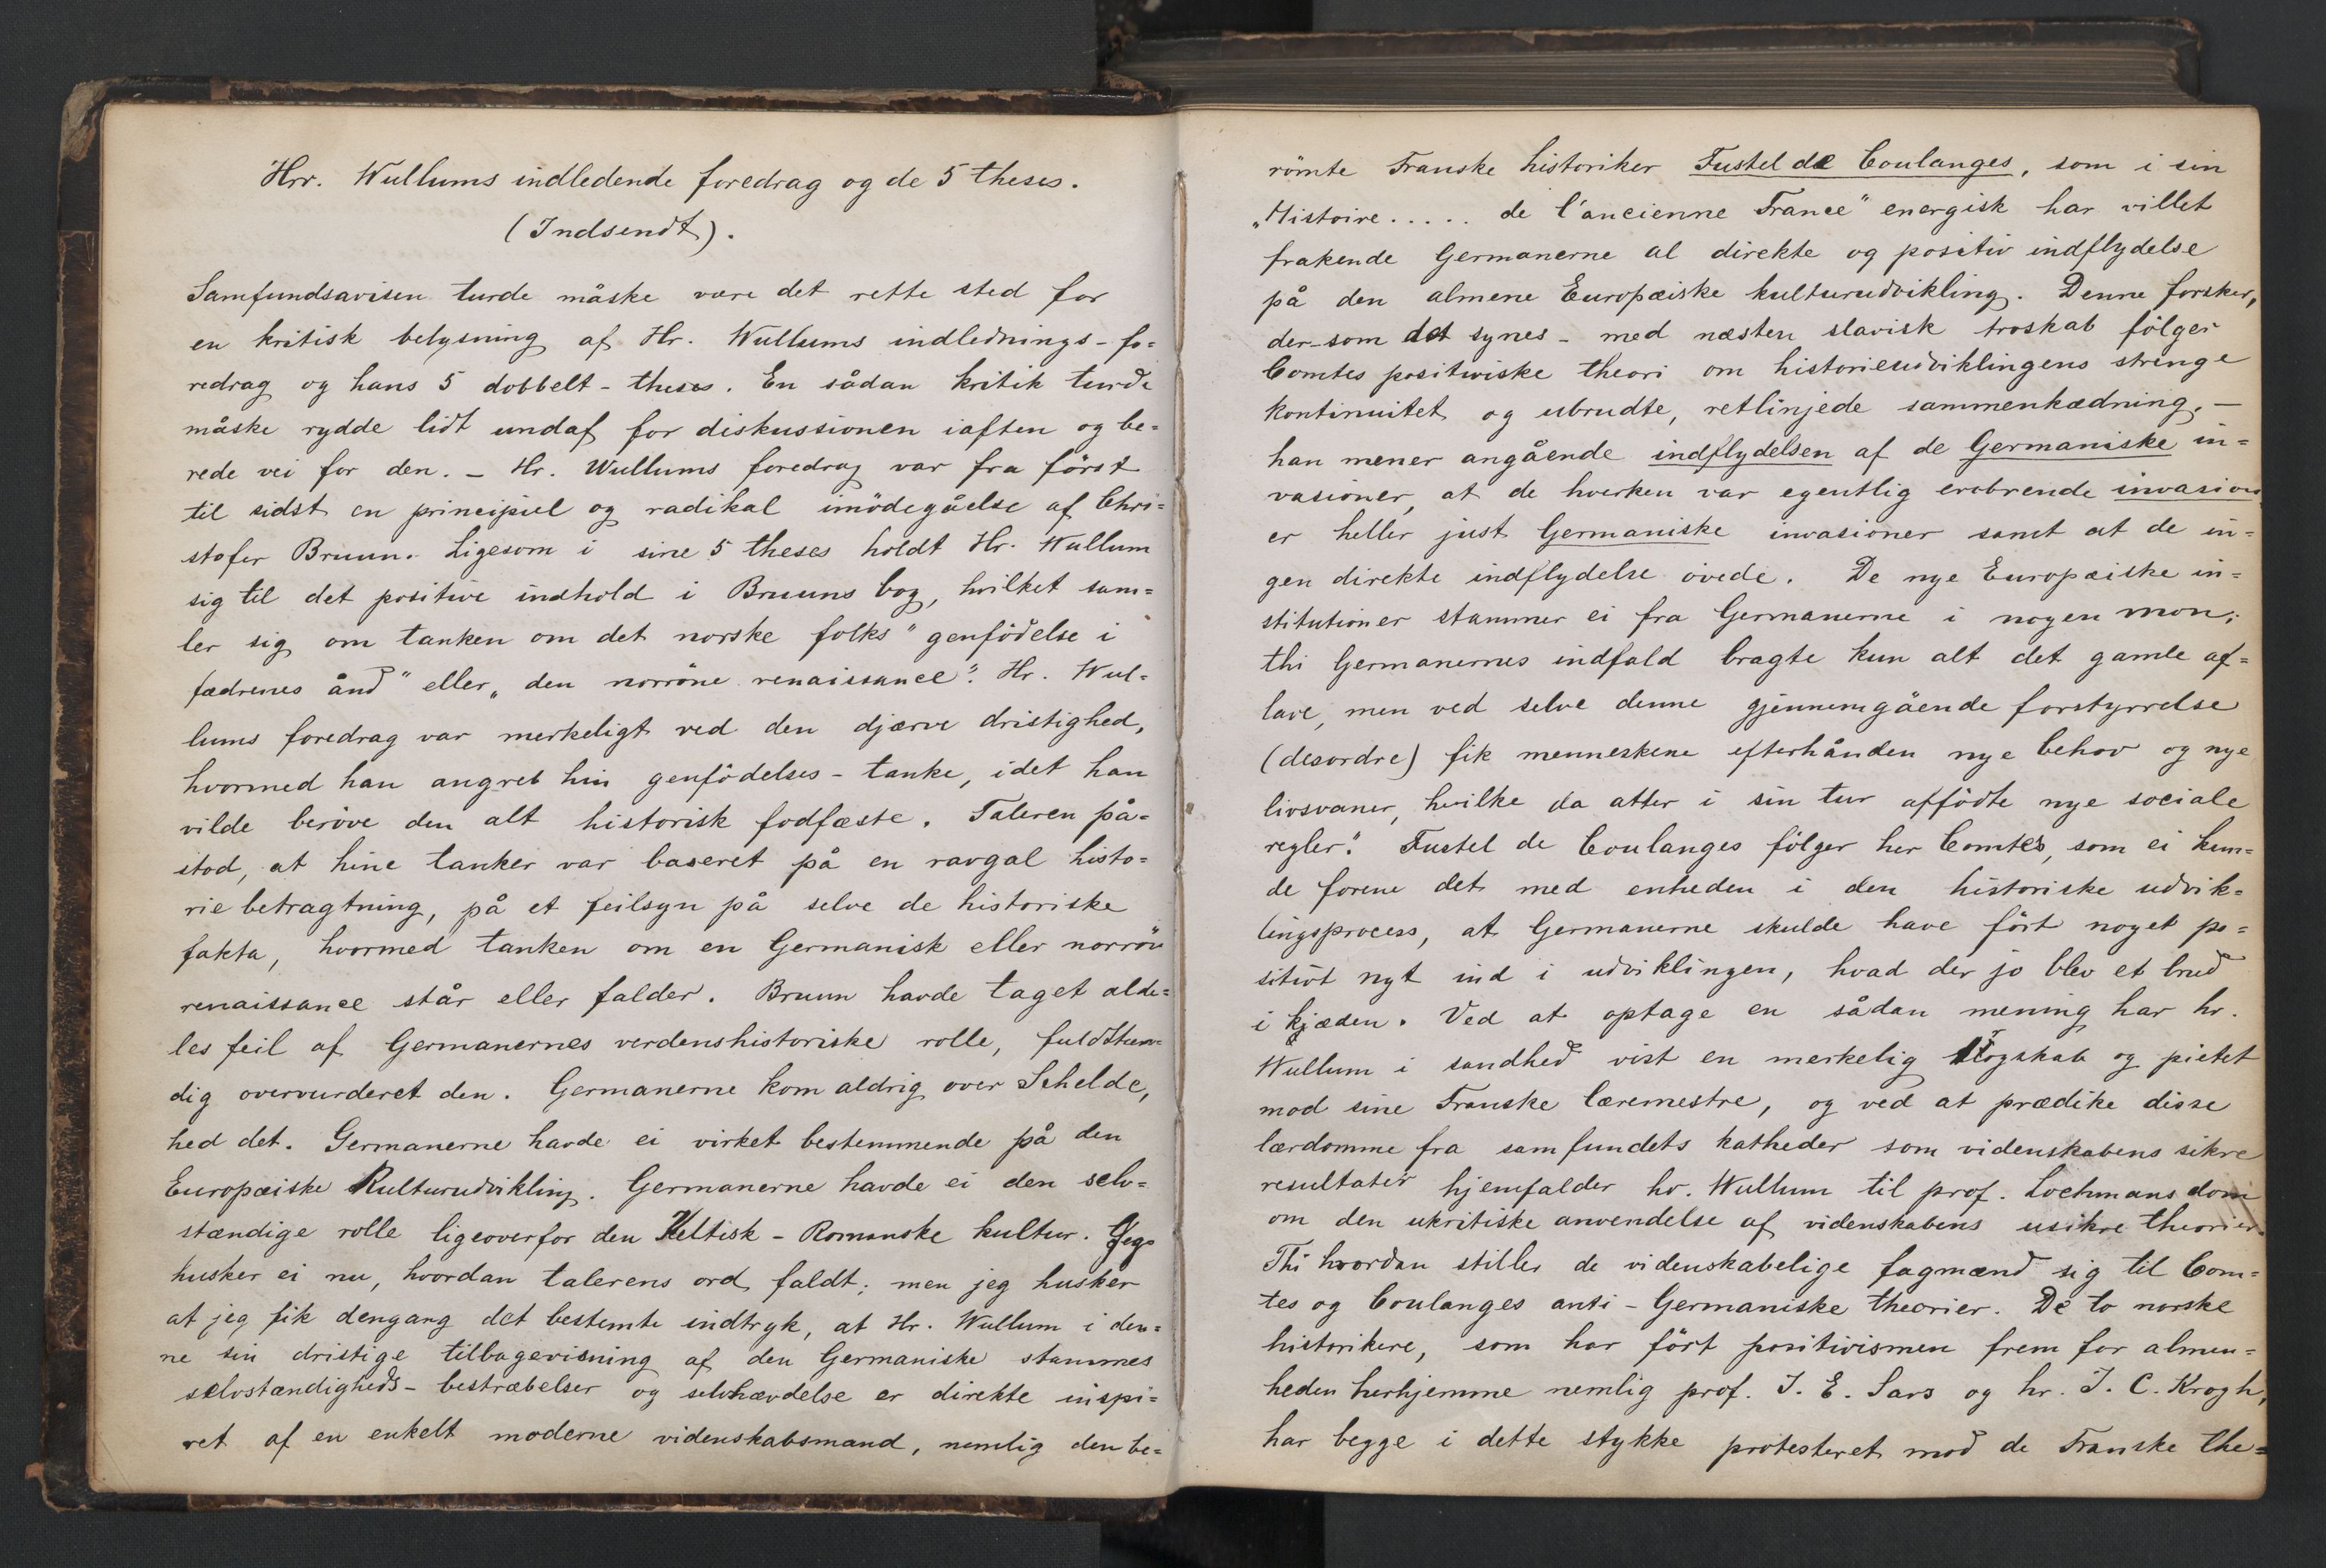 Hrr. Wullums indledende foredrag og de 5 theses.
(Indsendt).
Samfundsavisen turde måske være det rette sted for
en kritisk belysning af Hr. Wullums indlednings-fo=
redrag og hans 5 dobbelt-theses. En sådan kritik turde
måske rydde lidt undaf for diskussionen iaften og be=
rede vei for den. – Hr. Wullums foredrag var fra först
til sidst en principiel og radikal imödegåelse af Chri=
stofer Bruun. Ligesom i sine 5 theses holdt Hr. Wullum
sig til det positive indhold i Bruuns bog, hvilket sam=
ler sig om tanken om det norske folks "genfödelse i
fædrenes ånd" eller „den norröne renaissance". Hr. Wul=
lums foredrag var merkeligt ved den djærve dristighed,
hvormed han angreb hin genfödelses-tanke, idet han
vilde beröve den alt historisk fodfæste. Taleren på=
stod, at hine tanker var baseret på en ravgal histo=
rie betragtning, på et feilsyn på selve de historiske
fakta, hvormed tanken om en Germanisk eller norrön
renaissance står eller falder. Bruun havde taget alde=
les feil af Germanernes verdenshistoriske rolle, fuldstæn=
dig overvurderet den. Germanerne kom aldrig over Schelde,
hed det. Germanerne havde ei virket bestemmende på den
Europæiske Kulturudvikling. Germanerne havde ei den selv=
stændige rolle ligeoverfor den Keltisk-Romanske kultur. Jeg
husker ei nu, hvordan talerens ord faldt; men jeg husker
at jeg fik dengang det bestemte indtryk, at Hr. Wullum i den=
ne sin dristige tilbagevisning af den Germaniske stammes
selvstændigheds-bestræbelser og selvhævdelse er direkte inspi=
ret af en enkelt moderne videnskabsmand, nemlig den be=
römte Franske historiker Fustel de Coulanges, som i sin
„Histoire..... de l'ancienne France" energisk har villet
frakende Germanerne al direkte og positiv indflydelse
på den almene Europæiske kulturudvikling. Denne forsker,
der-som det synes- med næsten slavisk troskab fölger
Comtes positiviske theori om historieudviklingens strenge
kontinuitet og ubrudte, retlinjede sammenkædning, –
han mener angående indflydelsen af de Germaniske in=
vasioner, at de hverken var egentlig erobrende invasion
er heller just Germaniske invasioner samt at de in=
gen direkte indflydelse övede. De nye Europæiske in=
stitutioner stammer ei fra Germanerne i nogen mon;
thi Germanernes indfald bragte kun alt det gamle af=
lave, men ved selve denne gjennemgående forstyrrelse
(desordre) fik menneskene efterhånden nye behov og nye
livsvaner, hvilke da atter i sin tur affödte nye sociale
regler". Fustel de Coulanges fölger her Comtes, som ei kun=
de forene det med enheden i den historiske udvik=
lingsprocess, at Germanerne skulde have fört noget po=
sitivt nyt ind i udviklingen, hvad der jo blev et brud
i kjæden. Ved at optage en sådan mening har hr.
Wullum i sandhed vist en merkelig trogskab og pietet
mod sine Franske læremestre, og ved at prædike disse
lærdomme fra samfundets katheder som videnskabens sikre
resultater hjemfalder hr. Wullum til prof. Lochmans dom
om den ukritiske anvendelse af videnskabens usikre theorier
Thi hvordan stiller de videnskabelige fagmænd sig til Com=
tes og Coulanges anti-Germaniske theorier. De to norske
historikere, som har fört positivismen frem for almen=
heden herhjemme nemlig prof. J. E. Sars og hr. J. C. Krogh,
har begge i dette stykke protesteret mod de Franske the=